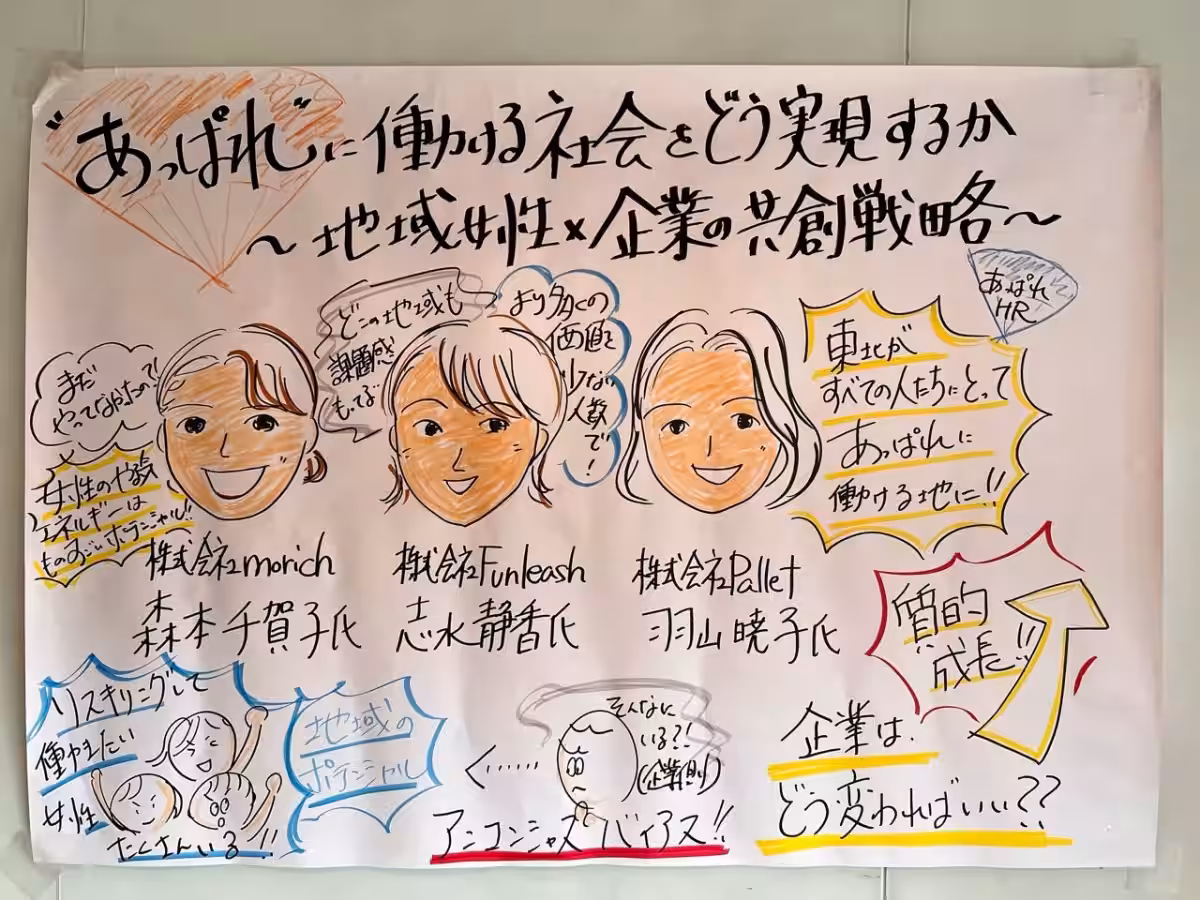 "あっぱれ"に働ける社会をどう実現するか
～地域女性×企業の共創戦略～
あっぱれ
HR
まだ
やってなかったの!?
女性のやる気
エネルギーは
ものすごいポテンシャル!!
どこの地域も
課題感
もってる
より多くの
価値を
少ない
人数
で!
東北が
すべての人たちにとって
あっぱれに
働ける地に!!
株式会社morich
森本千賀子氏
株式会社Funleash
志水静香氏
株式会社Pallet
羽山暁子氏
質的
成長!!
リスキリングして
働きたい
女性
たくさんいる!!
地域の
ポテンシャル
そんなに
いる?!
(企業側)
アンコンシャスバイアス!!
企業は、
どう変わればいい??